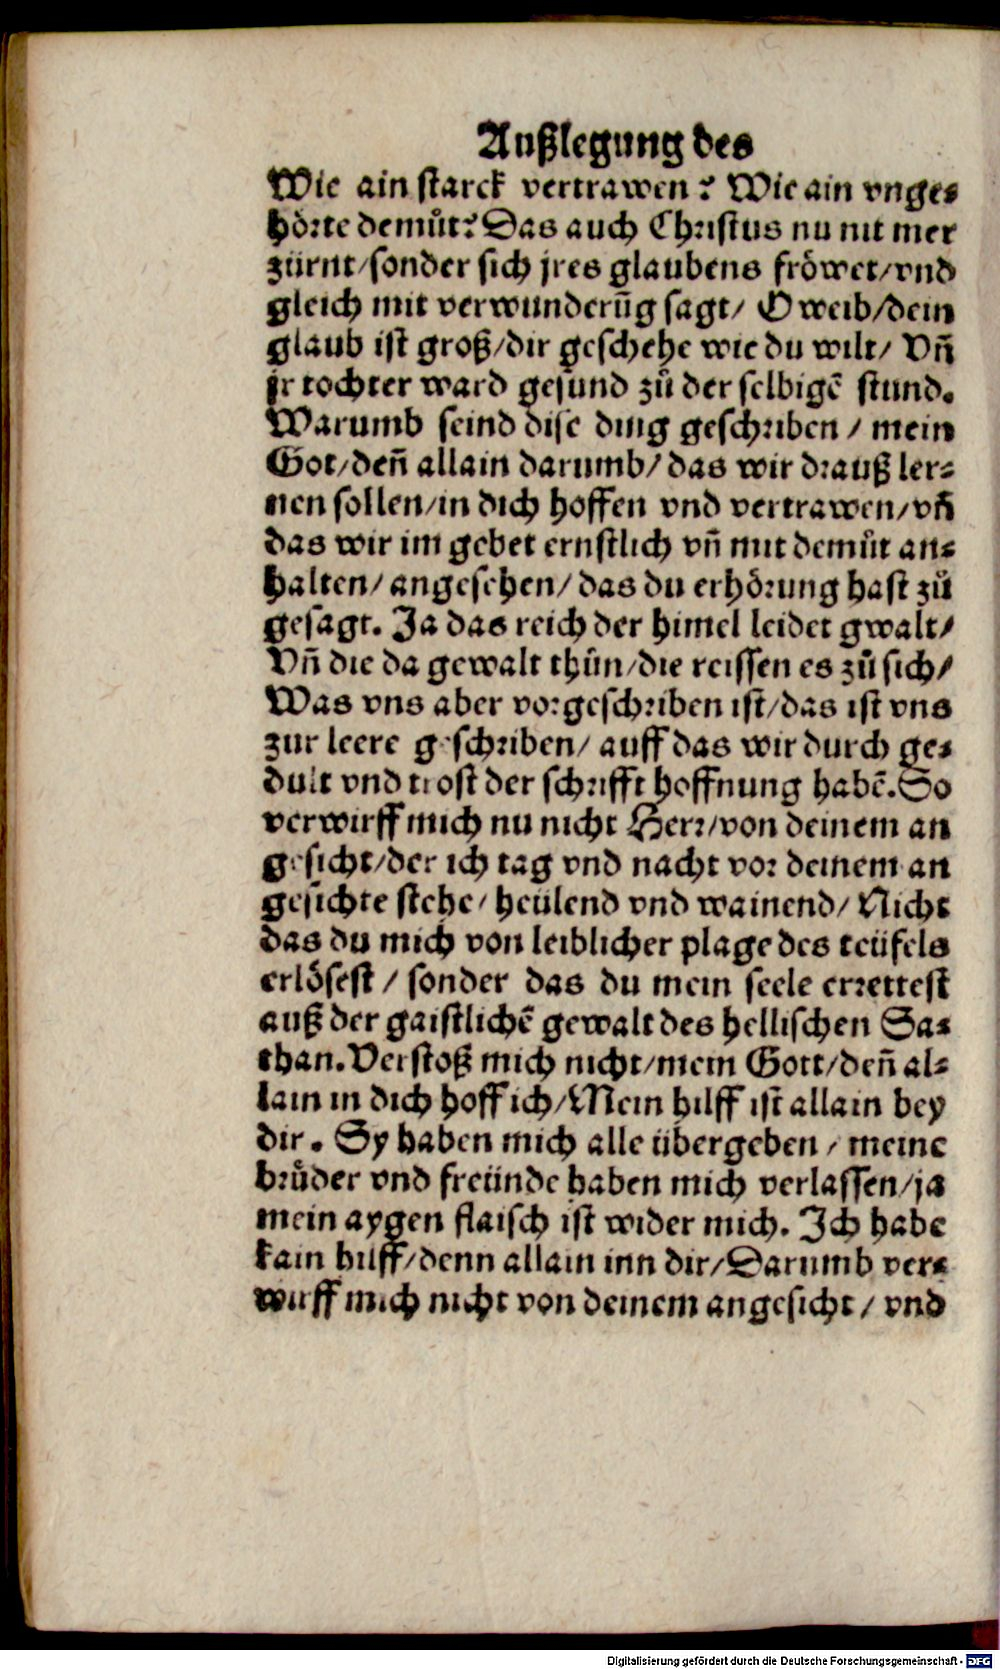 Außlegung des
Wie ain starck vertrawen? Wie ain vnge⸗
hörte demůt? Das auch Christus nu nit mer
zürnt/sonder sich jres glaubens fröwet/vnd
gleich mit verwunderũg sagt/ O weib/dein
glaub ist groß/dir geschehe wie du wilt/ Vñ
jr tochter ward gesund zů der selbigẽ stund.
Warumb seind dise ding geschriben / mein
Got/deñ allain darumb/ das wir drauß ler⸗
nen sollen/in dich hoffen vnd vertrawen/vñ
das wir im gebet ernstlich vñ mit demůt an⸗
halten/ angesehen/ das du erhörung hast zů
gesagt. Ja das reich der himel leidet gwalt/
Vñ die da gewalt thůn/die reissen es zů sich/
Was vns aber vorgeschriben ist/das ist vns
zur leere geschriben/ auff das wir durch ge⸗
dult vnd trost der schrifft hoffnung habẽ. So
verwirff mich nu nicht Herr/von deinem an
gesicht/der ich tag vnd nacht vor deinem an
gesichte stehe/ heülend vnd wainend/ Nicht
das du mich von leiblicher plage des teüfels
erlösest / sonder das du mein seele errettest
auß der gaistlichẽ gewalt des hellischen Sa⸗
than. Verstoß mich nicht/mein Gott/deñ al⸗
lain in dich hoff ich/Mein hilff ist allain bey
dir. Sy haben mich alle übergeben / meine
brůder vnd freünde haben mich verlassen/ja
mein aygen flaisch ist wider mich. Ich habe
kain hilff/denn allain inn dir/Darumb ver⸗
wirff mich nicht von deinem angesicht / vnd
Digitalisierung gefördert durch die Deutsche Forschungsgemeinschaft - DFG